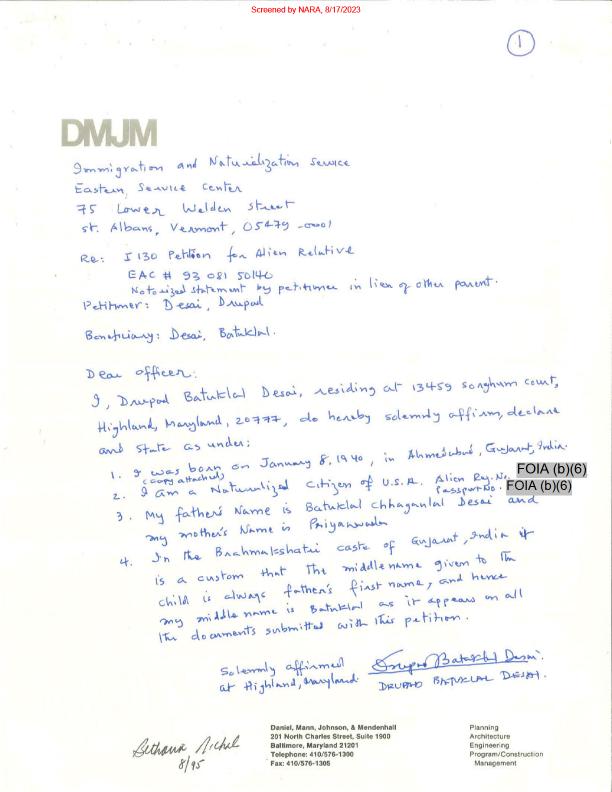 Screened by NARA, 8/17/2023
1
DMJM
Immigration and Naturalization Service
Eastern, Service Center
75 Lower Welden Street
St. Albans, Vermont, 05479-0001
Re: I 130 Petition for Alien Relative
EAC # 93 081 50140
Notorized statement by petitioner in lieu of other parent.
Petitioner: Desai, Drupad
Beneficiary: Desai, Batuklal.
Dear officer:
I, Drupad Batuklal Desai, residing at 13459 Sorghum Court,
Highland, Maryland, 20777, do hereby solemnly affirm, declare
and state as under:
1. I was born on January 8, 1940, in Ahmedabad, Gujarat, India.
(copy attached)
2. I am a Naturalized Citizen of U.S.A. Alien Reg. No. FOIA (b)(6)
Passport No. FOIA (b)(6)
3. My father's Name is Batuklal Chhaganlal Desai and
my mother's Name is Priyamvada
4. In the Brahmakshatri caste of Gujarat, India it
is a custom that the middle name given to the
child is always father's first name, and hence
my middle name is Batuklal as it appears on all
the documents submitted with this petition.
Solemnly affirmed
at Highland, Maryland
Drupad Batuklal Desai.
DRUPAD BATUKLAL DESAI.
8/95
Daniel, Mann, Johnson, & Mendenhall
201 North Charles Street, Suite 1900
Baltimore, Maryland 21201
Telephone: 410/576-1300
Fax: 410/576-1305
Planning
Architecture
Engineering
Program/Construction
Management